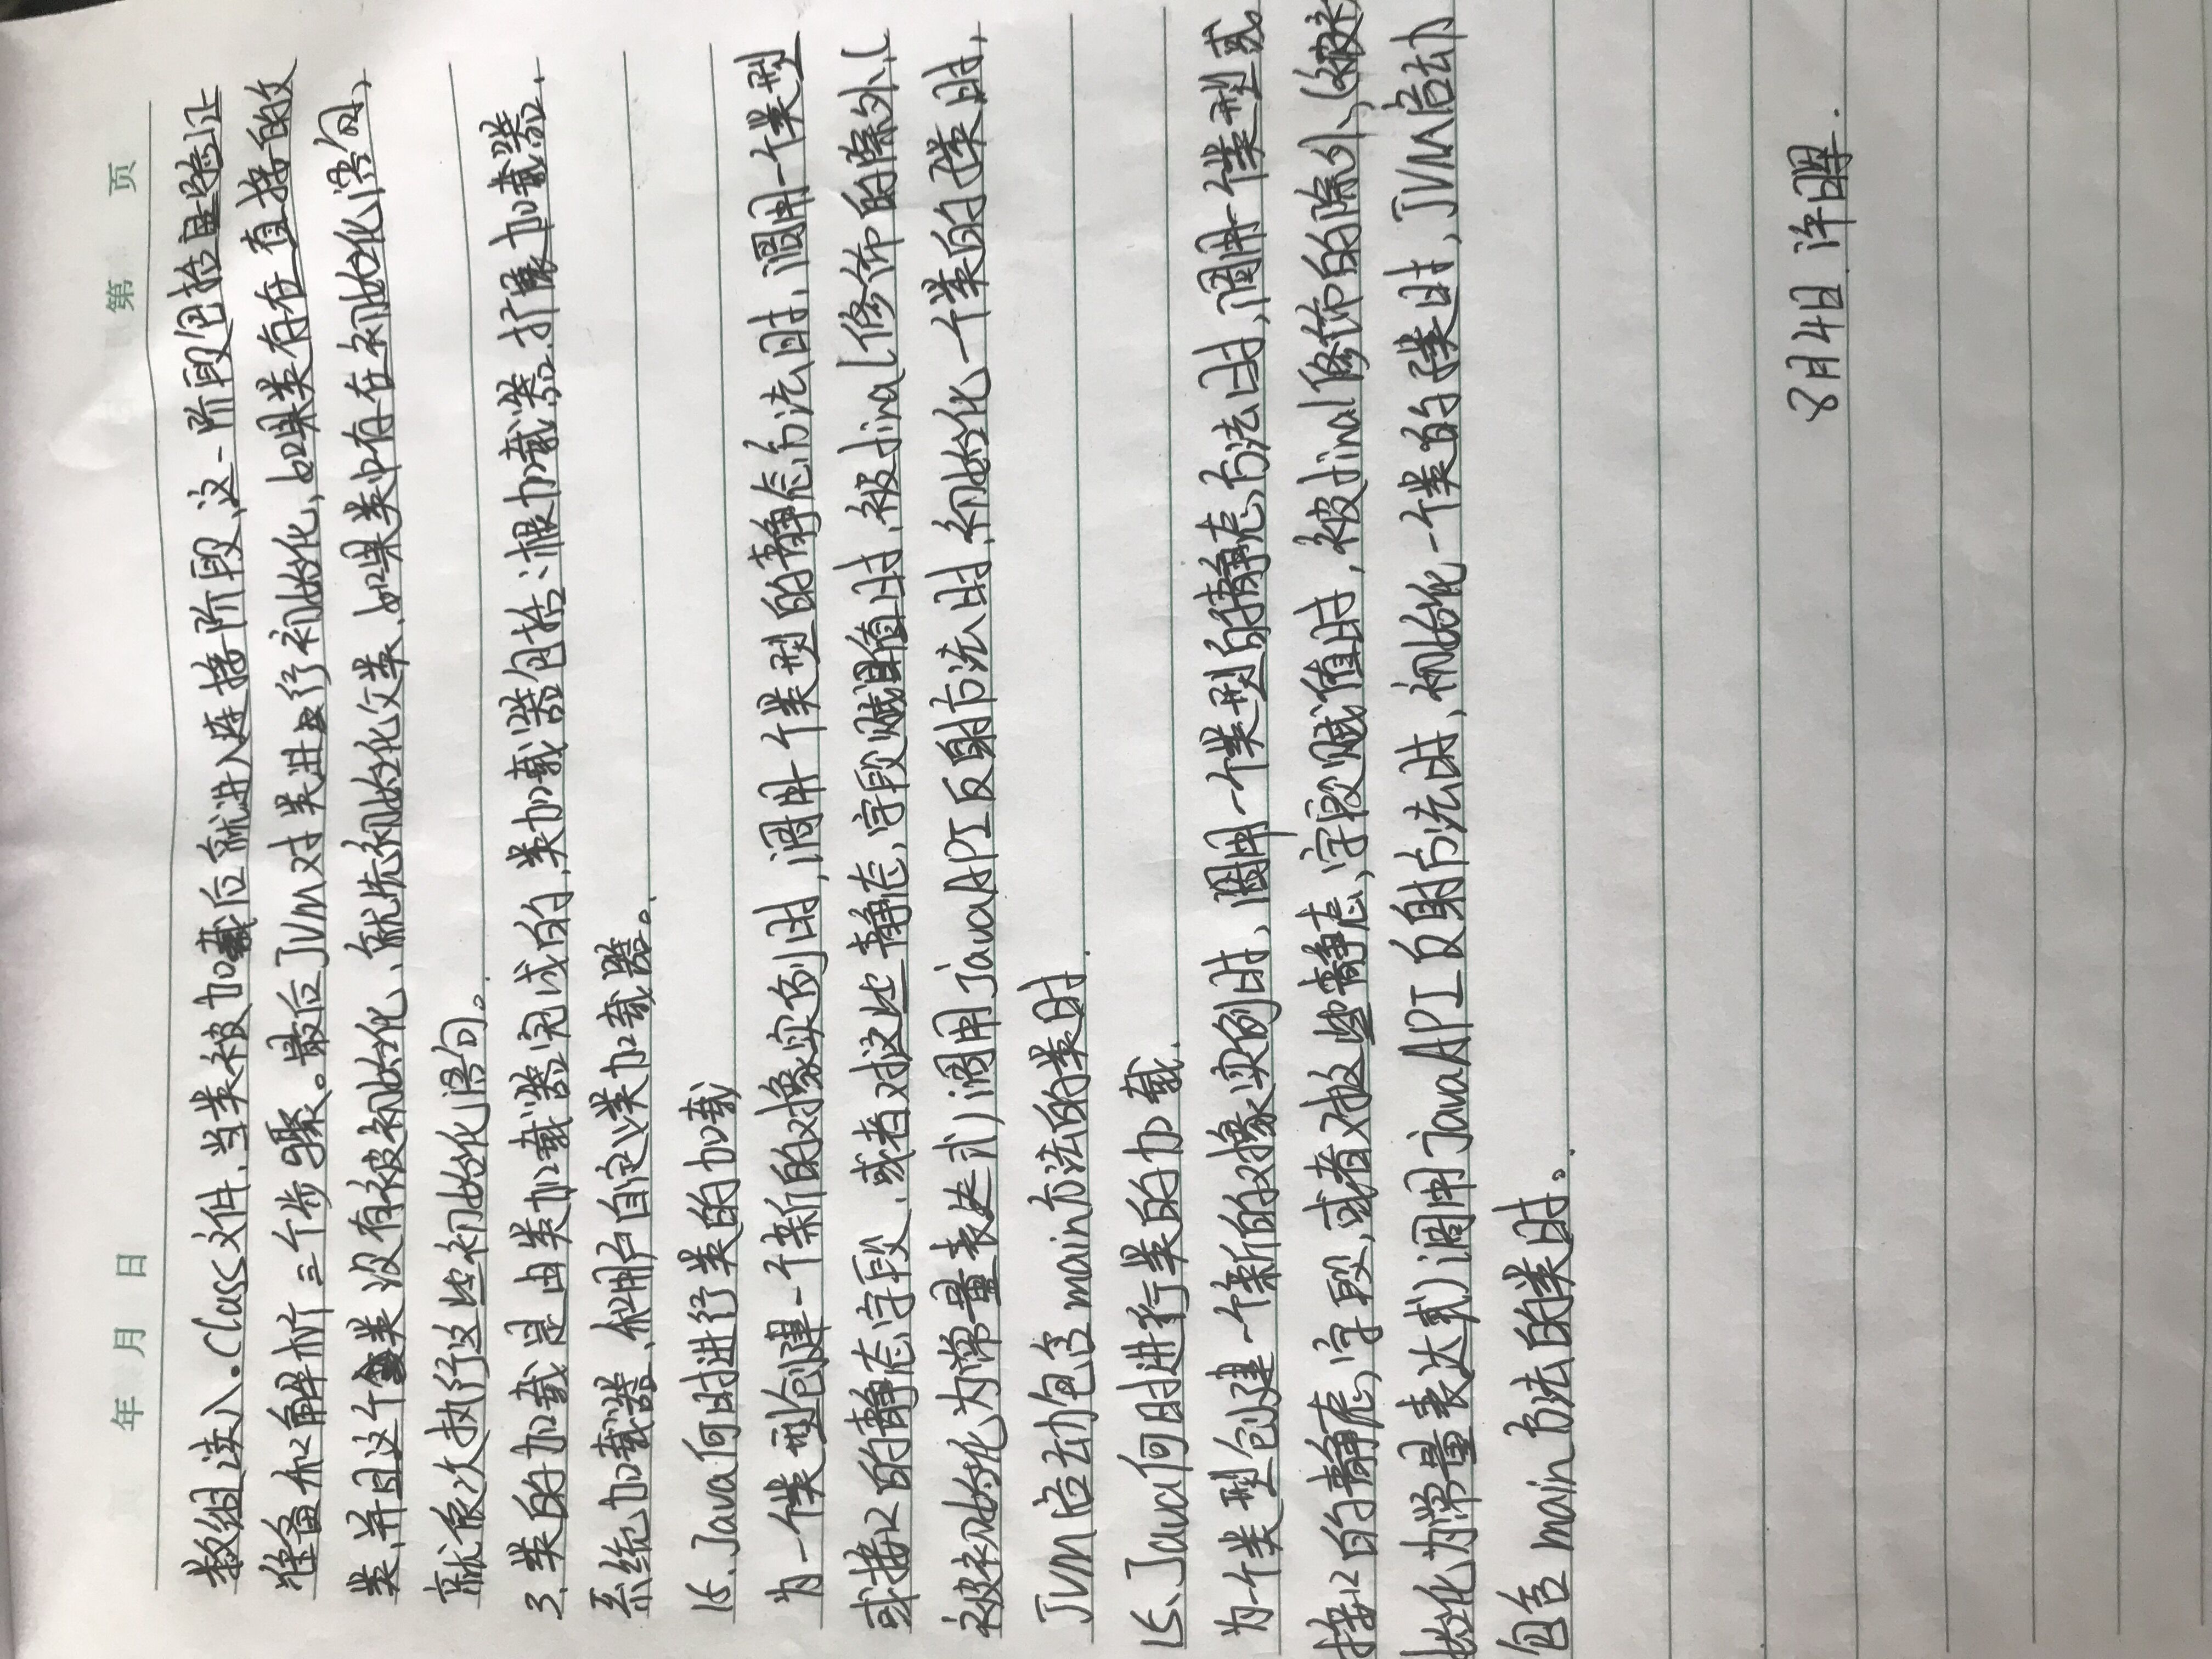 年 月 日 第 页
数组读入.Class文件,当类被加载后就进入连接阶段,这一阶段包括验证
准备和解析三个步骤。最后JVM对类进行初始化,如果类存在直接的父
类,并且这个类没有被初始化,就先初始化父类,如果类中存在初始化语句,
就依次执行这些初始化语句。
3.类的加载是由类加载器完成的,类加载器包括:根加载器、扩展加载器、
系统加载器、和用户自定义类加载器。
15.Java何时进行类的加载
为一个类型创建一个新的对象实例时,调用一个类型的静态方法时,调用一个类型
或接口的静态字段,或者对这些静态字段赋值时,被final修饰的除外,(
被初始化为常量表达式)调用javaAPI反射方法时,初始化一个类的子类时,
JVM启动包含main方法的类时.
15、Java何时进行类的加载.
为一个类型创建一个新的对象实例时,调用一个类型的静态方法时,调用一个类型或
接口的静态字段,或者对这些静态字段赋值时,被final修饰的除外,(被初
始化为常量表达式)调用javaAPI反射方法时,初始化一个类的子类时,JVM启动
包含main方法的类时。
8月4日.许